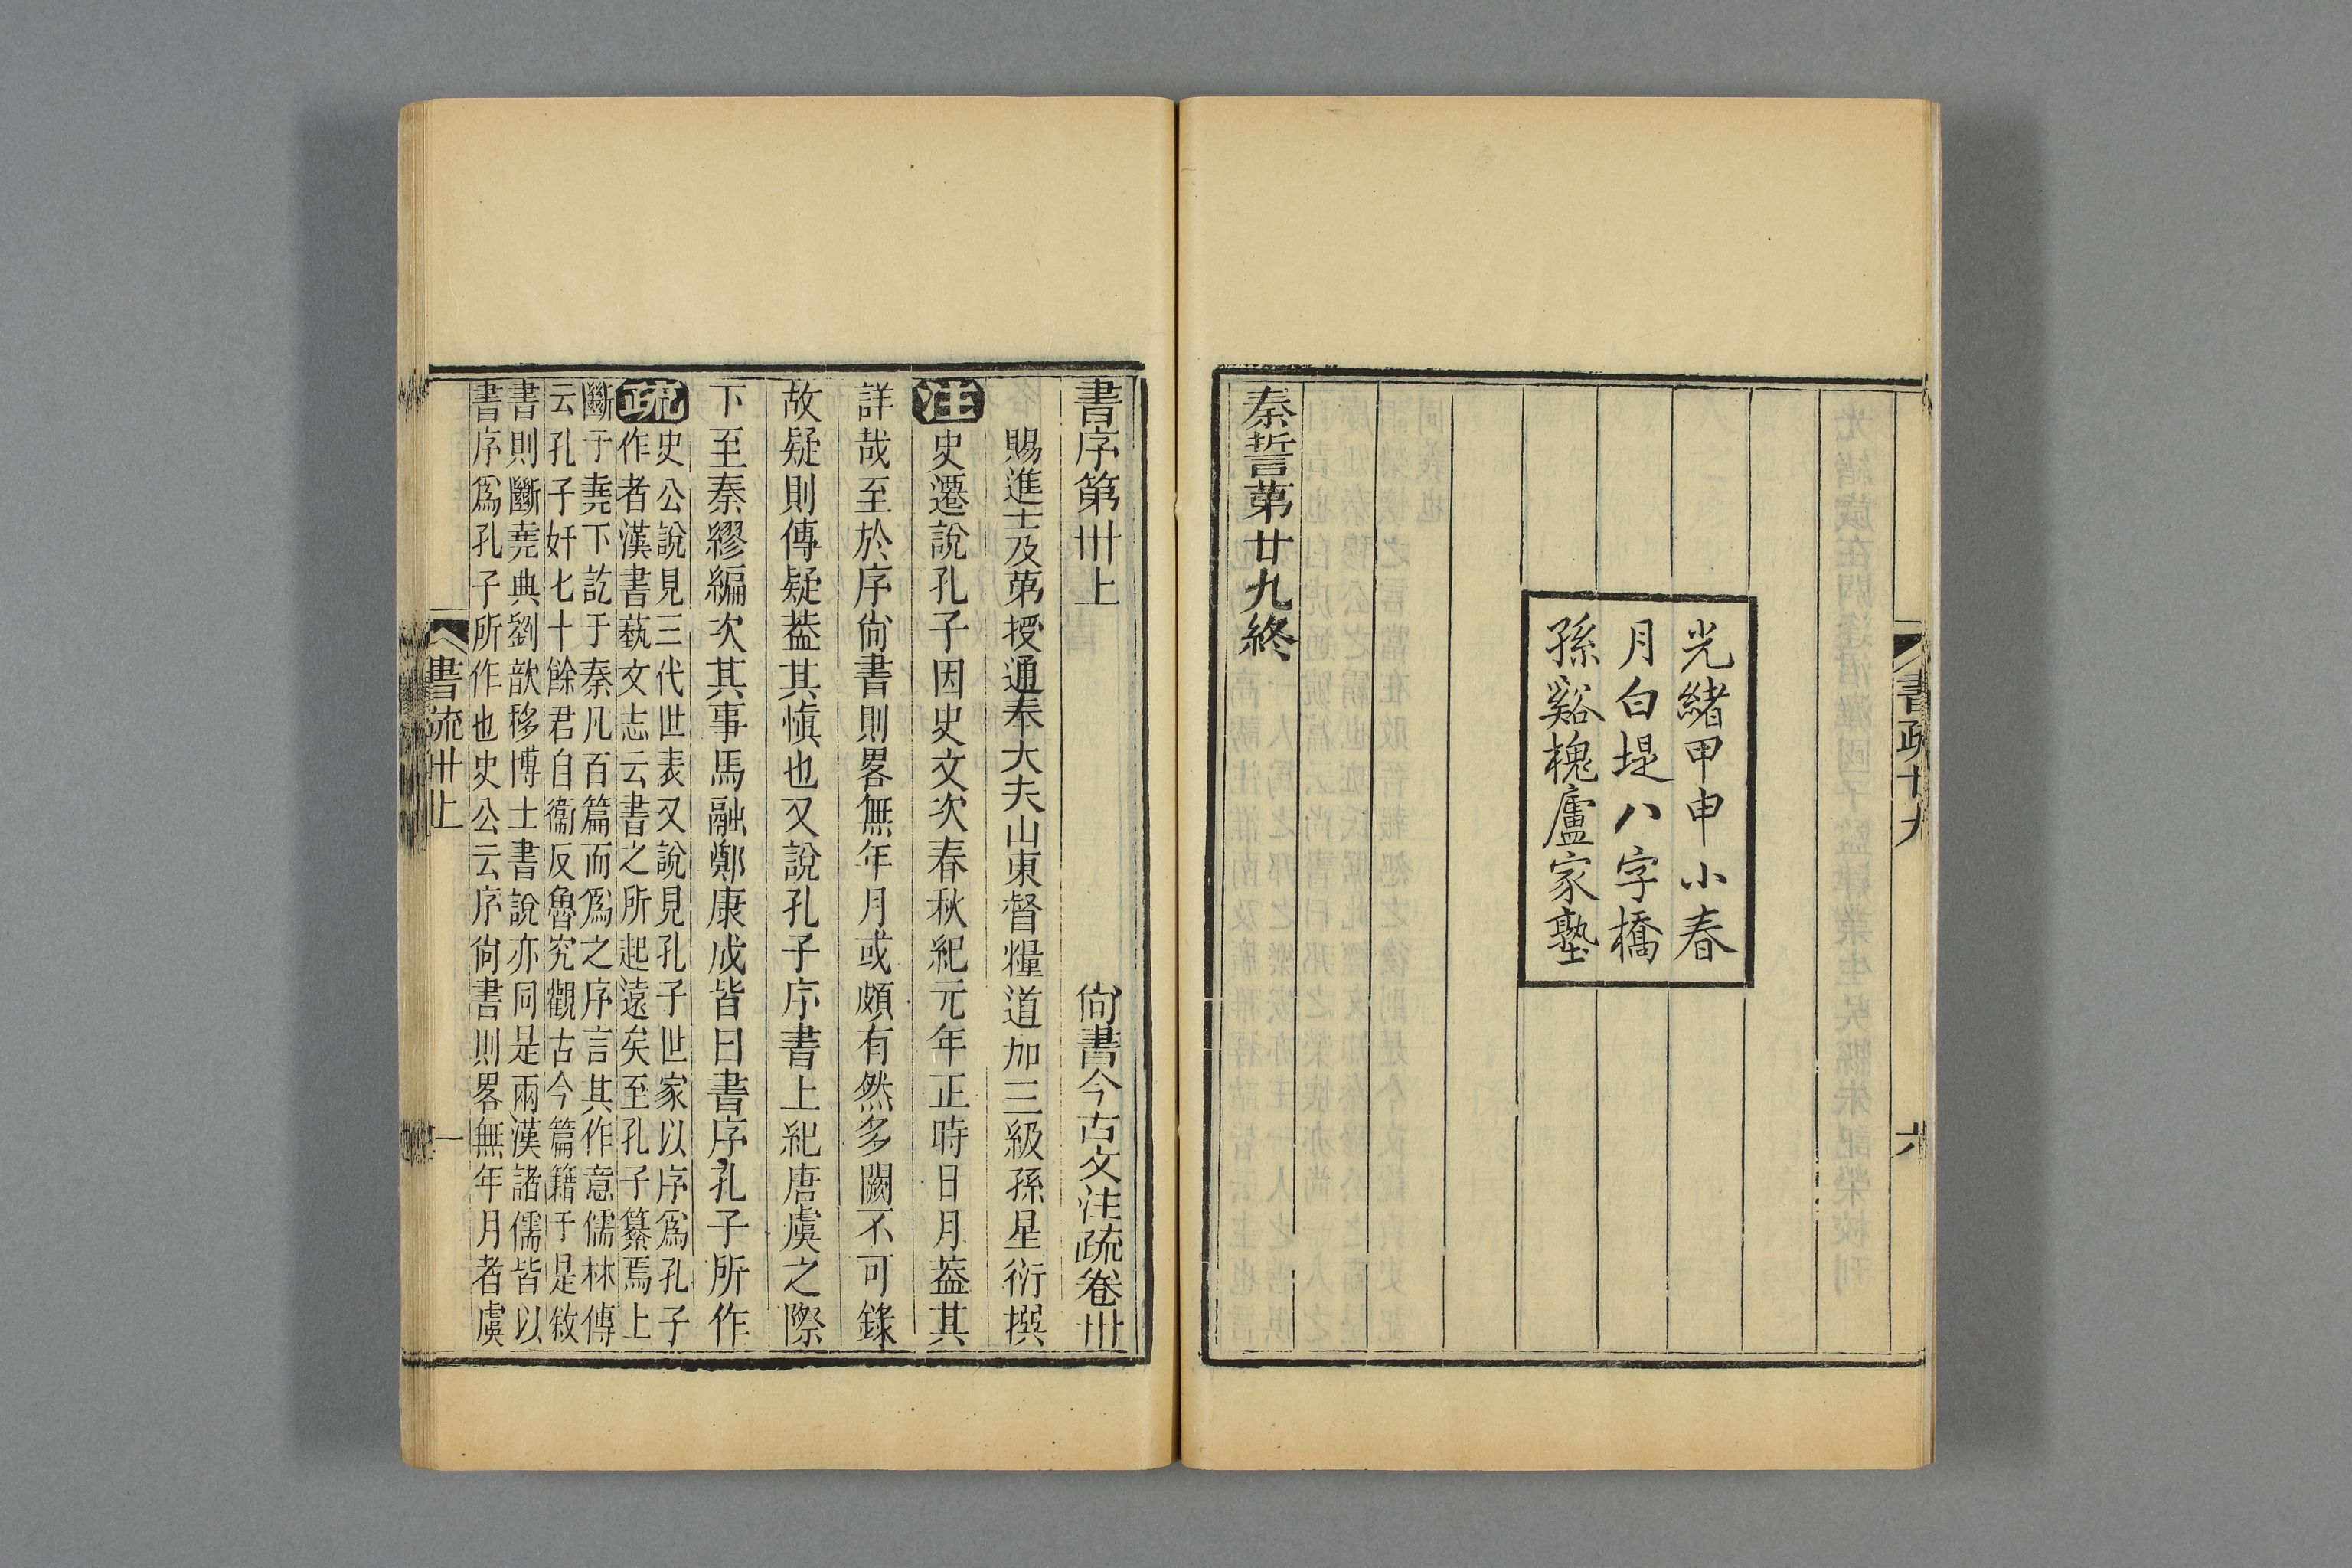 書疏廿九
六
光緒甲申小春
月白堤八字橋
孫谿槐廬家塾
秦誓第廿九終
書序第卅上
尙書今古文注疏卷卅
賜進士及第授通奉大夫山東督糧道加三級孫星衍撰
注史遷說孔子因史文次春秋紀元年正時日月葢其
詳哉至於序尙書則畧無年月或頗有然多闕不可錄
故疑則傳疑葢其愼也又說孔子序書上紀唐虞之際
下至秦繆編次其事馬融鄭康成皆曰書序孔子所作
疏史公說見三代世表又說見孔子世家以序爲孔子
作者漢書藝文志云書之所起遠矣至孔子纂焉上
斷于堯下訖于秦凡百篇而爲之序言其作意儒林傳
云孔子奸七十餘君自衞反魯究觀古今篇籍于是敘
書則斷堯典劉歆移博士書說亦同是兩漢諸儒皆以
書序爲孔子所作也史公云序尙書則畧無年月者虞
書疏卅上
一